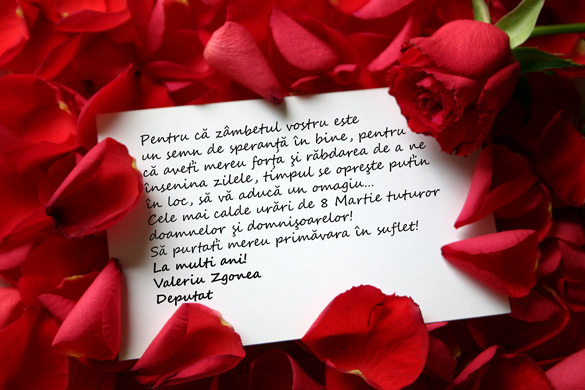 Pentru că zâmbetul vostru este
un semn de speranţă în bine, pentru
că aveţi mereu forţa şi răbdarea de a ne
însenina zilele, timpul se opreşte puţin
în loc, să vă aducă un omagiu...
Cele mai calde urări de 8 Martie tuturor
doamnelor şi domnişoarelor!
Să purtaţi mereu primăvara în suflet!
La multi ani!
Valeriu Zgonea
Deputat